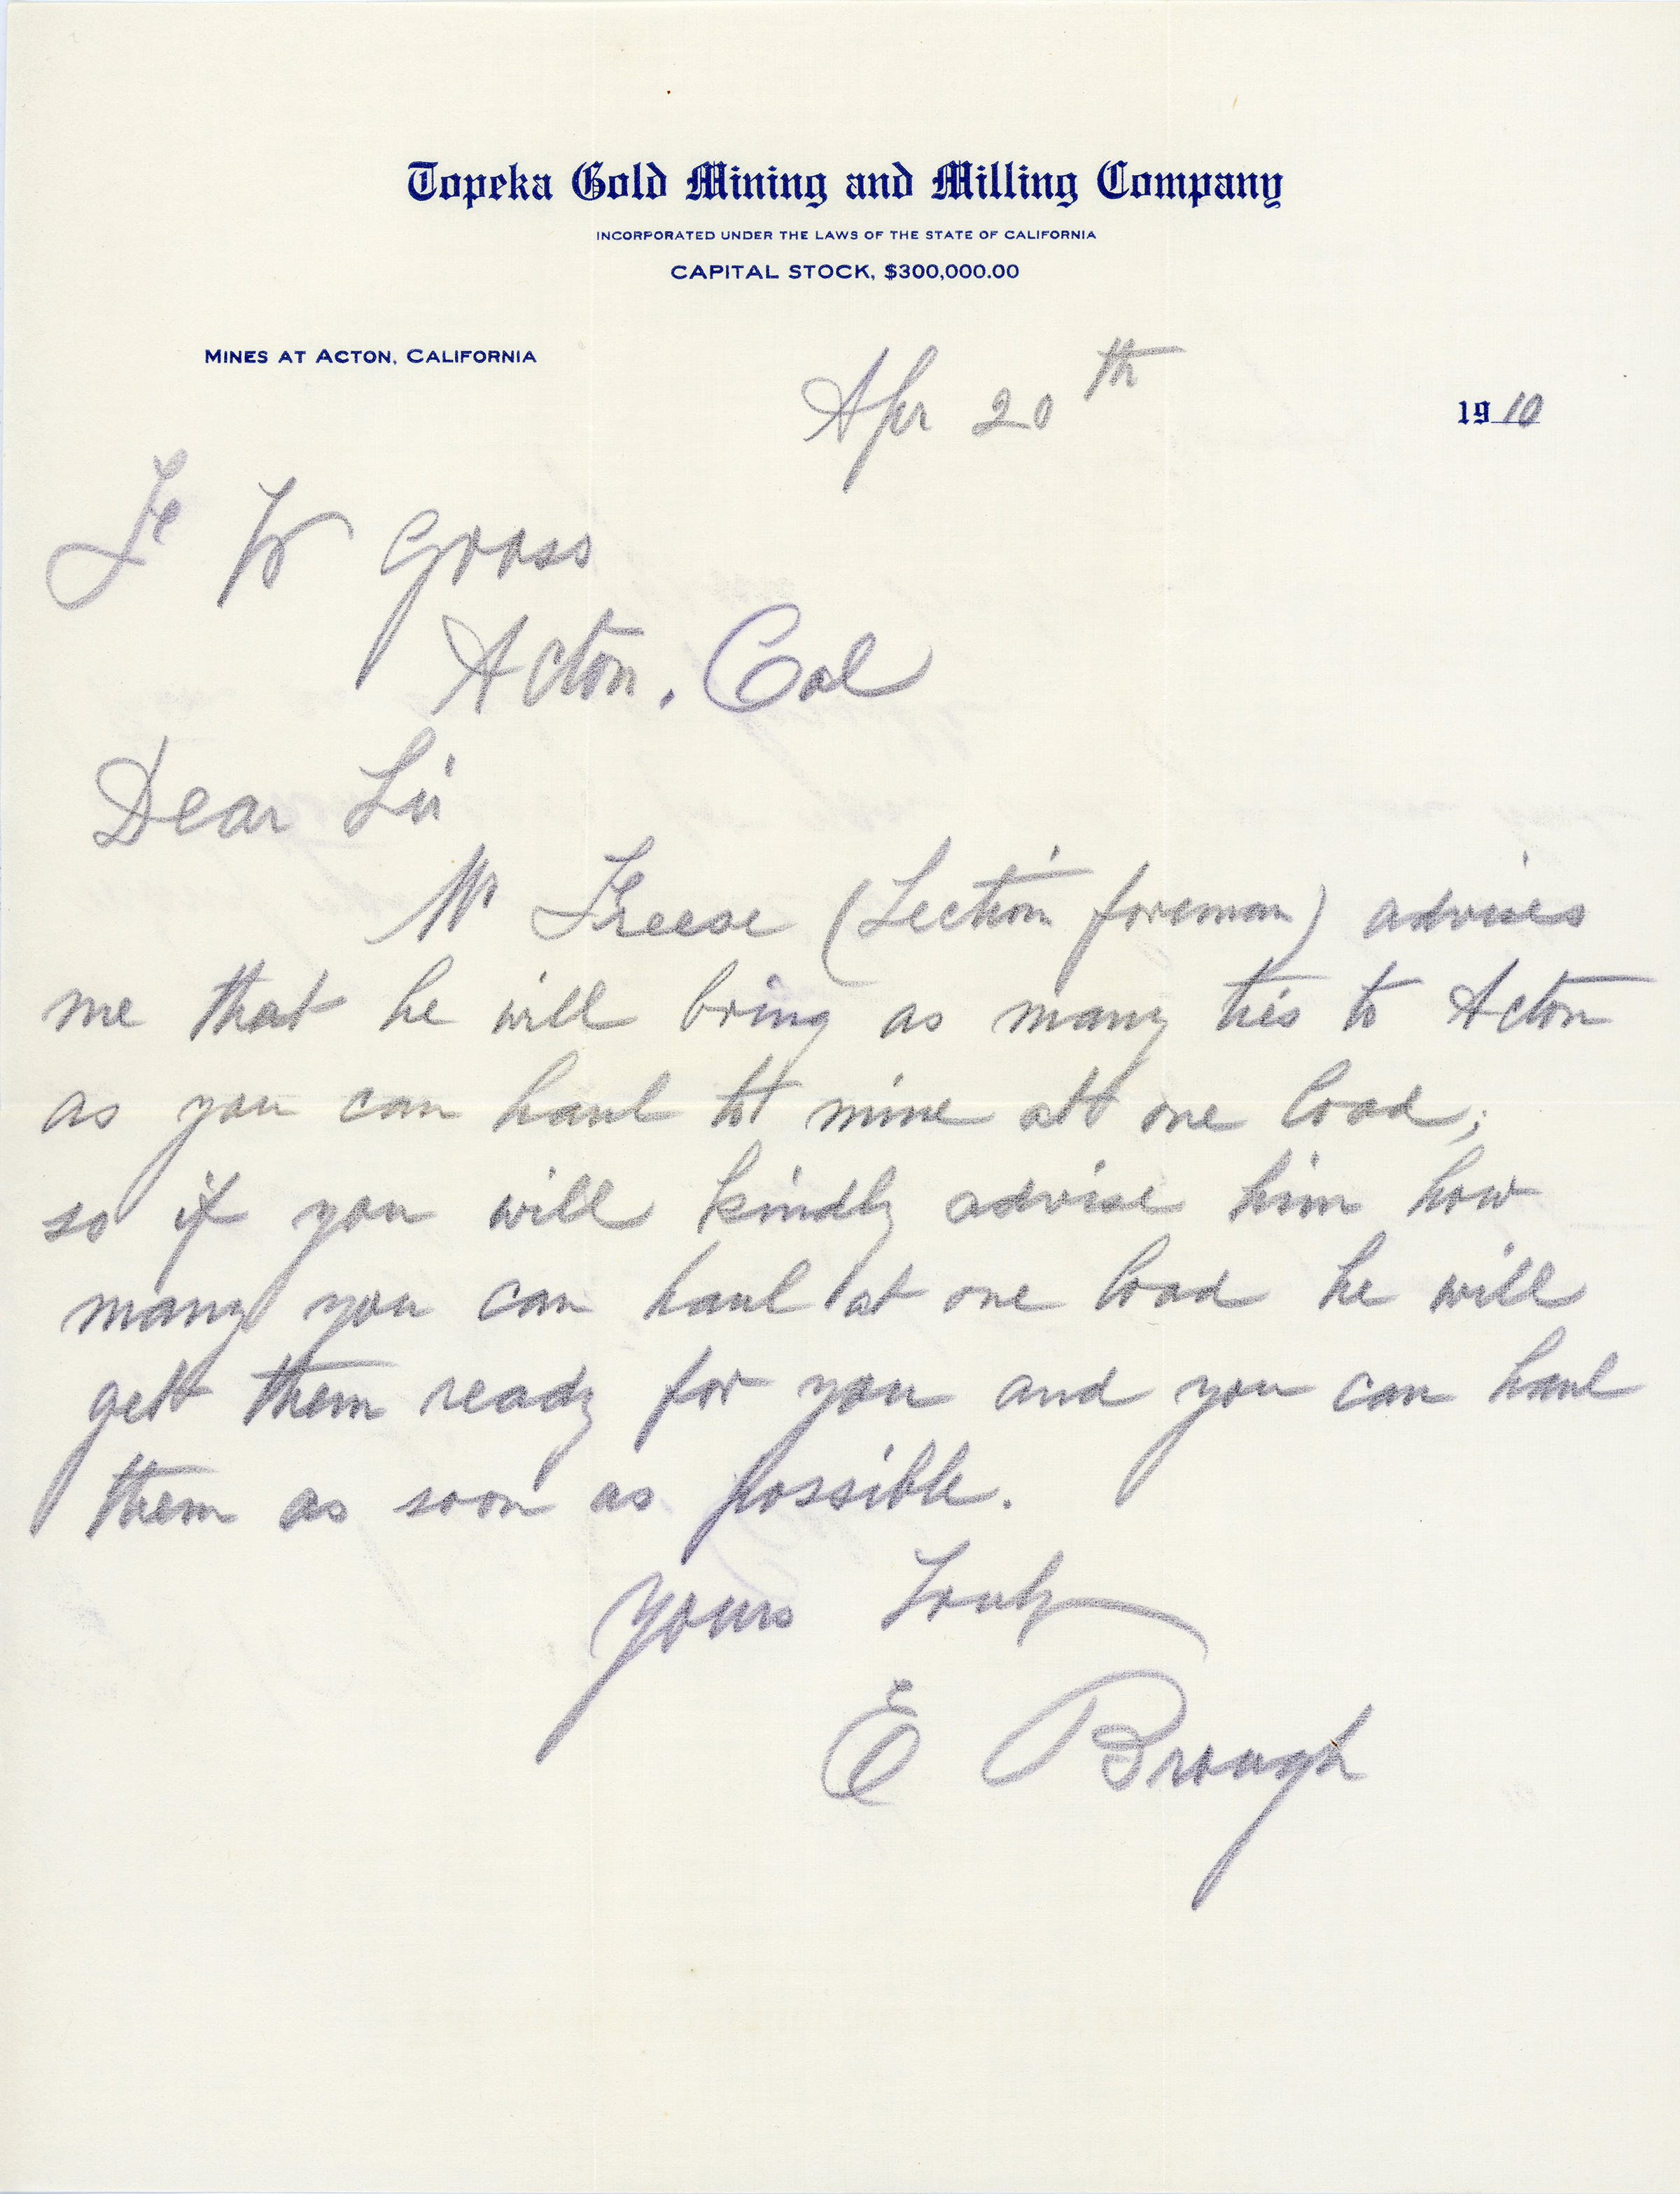 Topeka Gold Mining and Milling Company
INCORPORATED UNDER THE LAWS OF THE STATE OF CALIFORNIA
CAPITAL STOCK, $300,000.00
MINES AT ACTON, CALIFORNIA
Apr 20th 1910
W Gross
Acton. Cal
Dear Sir
Mr Freese (Section foreman) advises
me that he will bring as many ties to Acton
as you can haul to mine att one load;
so if you will kindly advise him how
many you can haul at one load he will
gett them ready for you and you can haul
them as soon as possible.
Yours Truly
E Brough